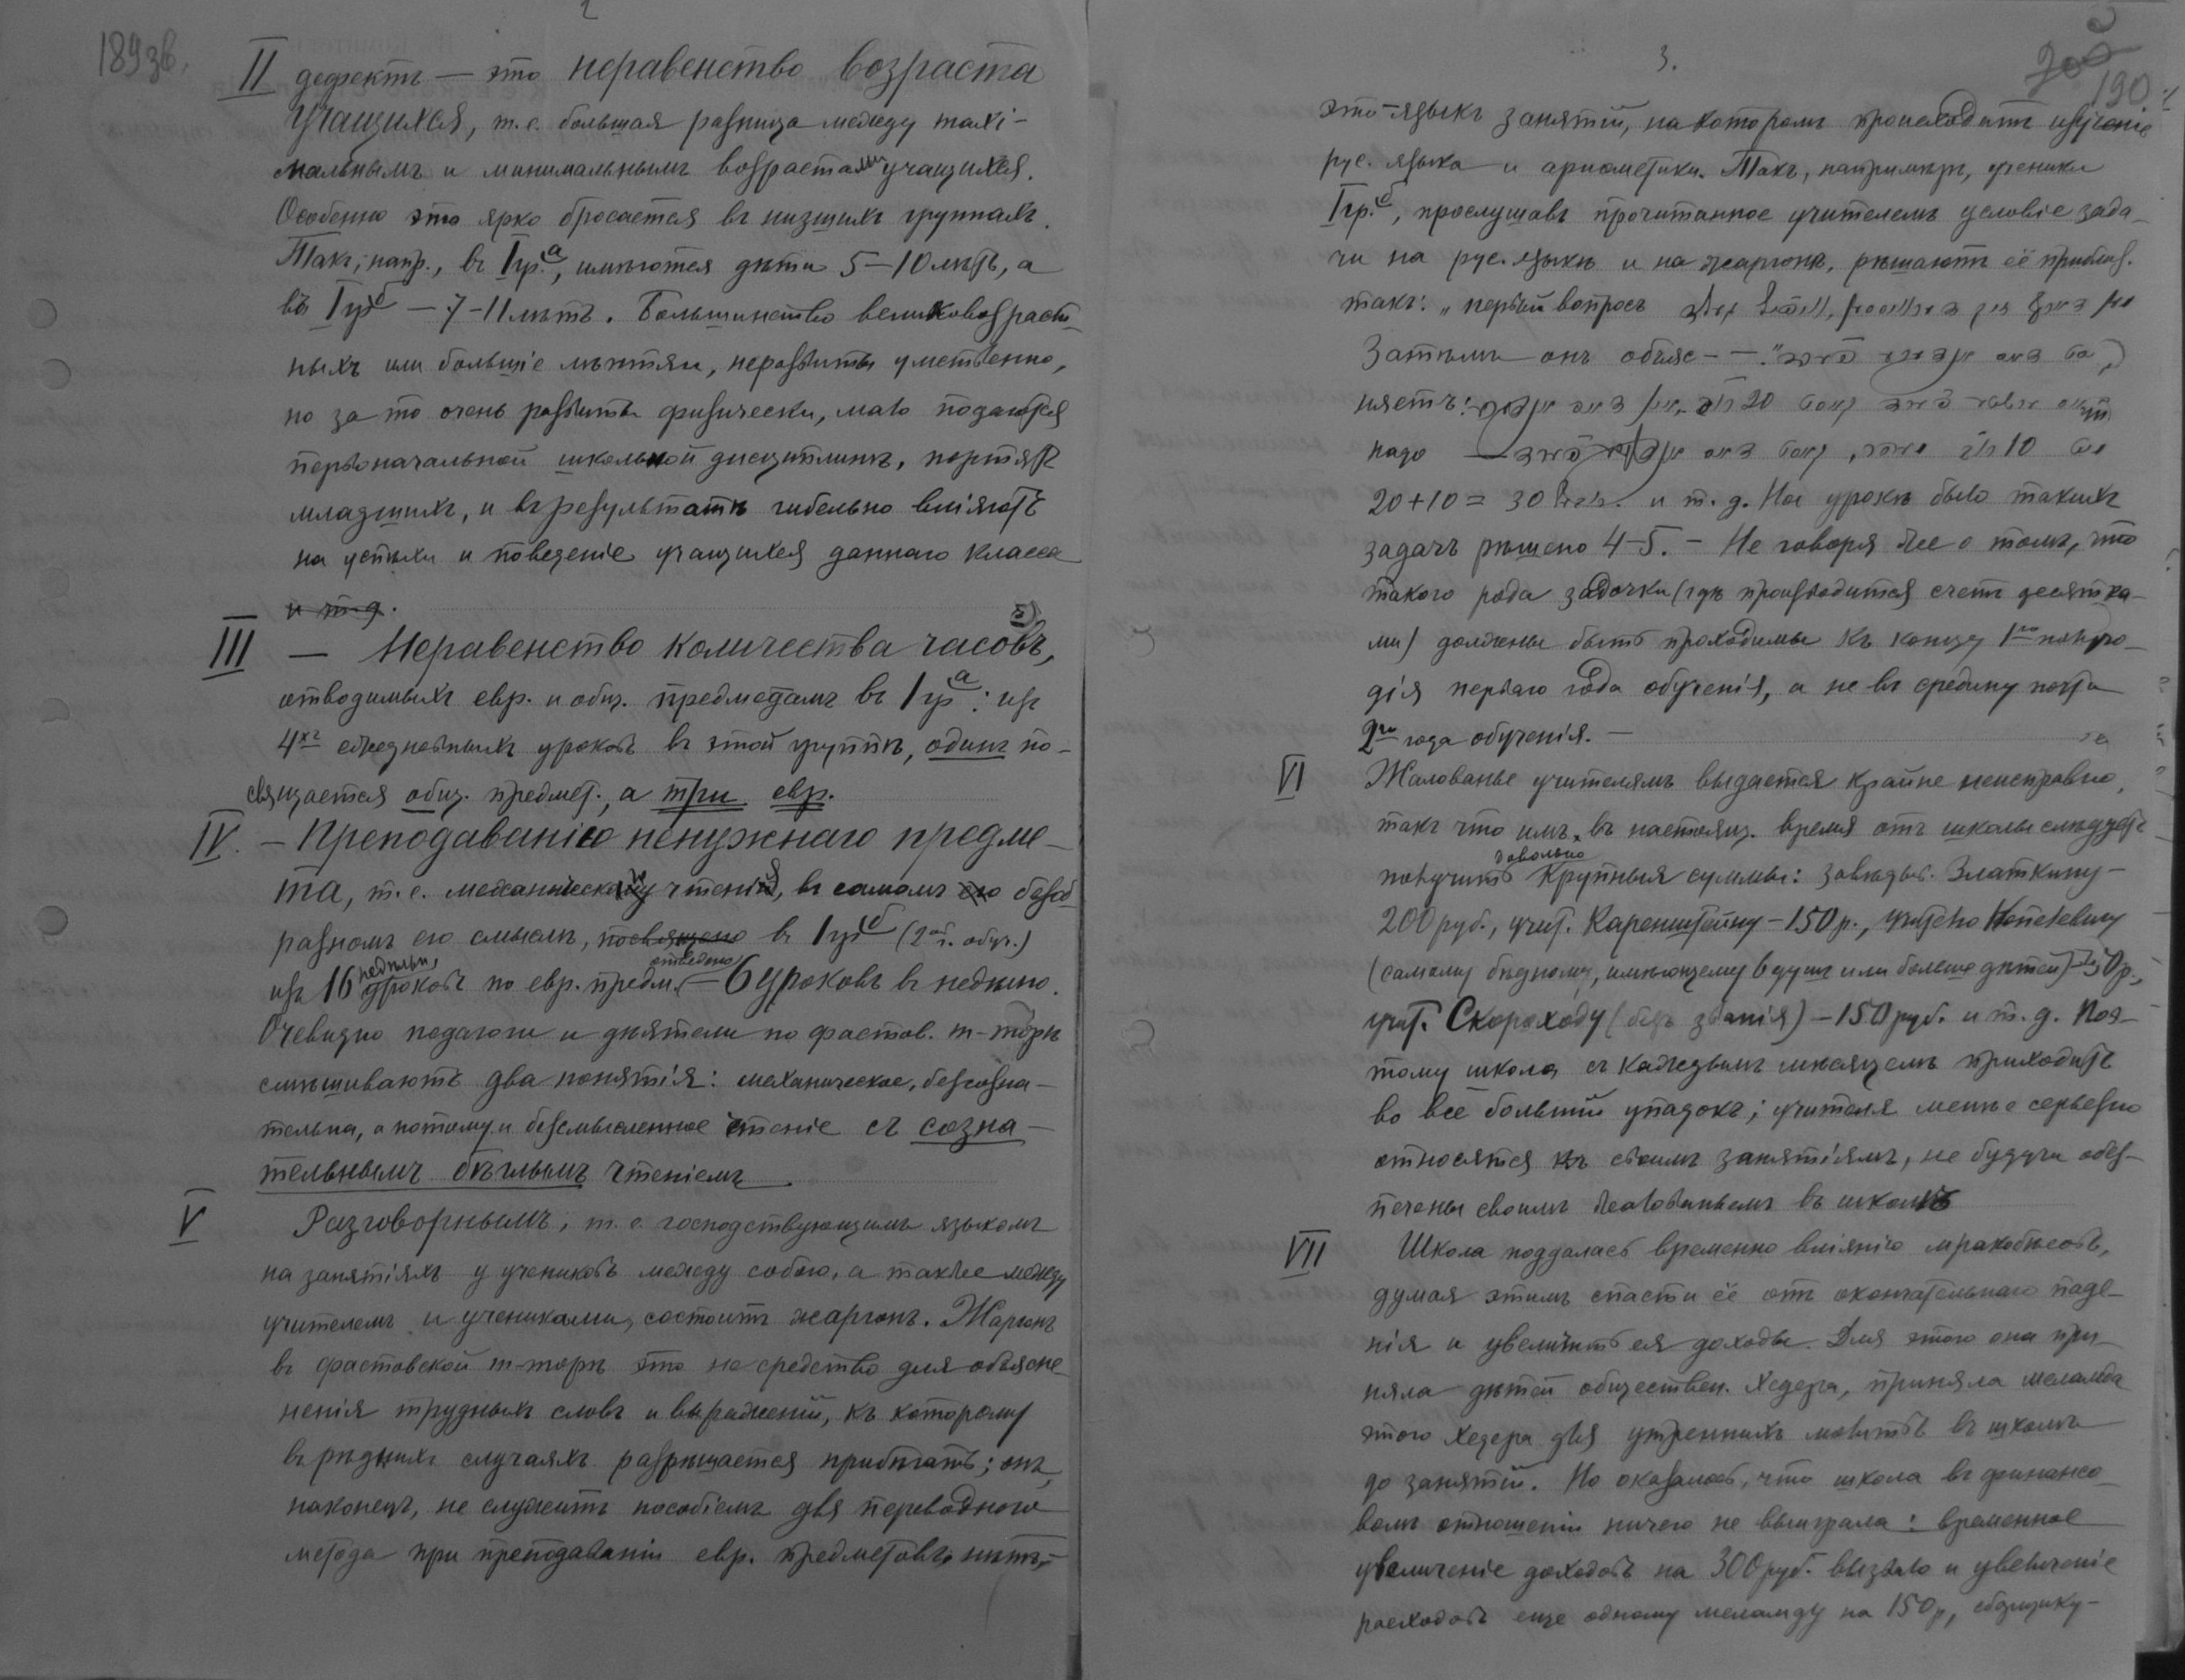 2
189 зв.
II дефектъ — это неравенство возраста
учащихся, т.е. большая разница между макси-
мальнымъ и минимальнымъ возрастами учащихся.
Особенно это ярко бросается въ низшихъ группахъ.
Такъ, напр., въ I гр.а, имѣются дѣти 5—10 лѣтъ, а
въ I грб — 7-11 лѣтъ. Большинство великовозраст-
ныхъ или большіе лѣнтяи, неразвиты умственно,
но за то очень развиты физически, мало подаются
первоначальной школьной дисциплинѣ, портятъ
младшихъ, и въ результатѣ гибельно вліяютъ
на успѣхи и поведеніе учащихся даннаго класса
и т.д.
III — Неравенство количества часовъ,
отводимыхъ евр. и общ. предметамъ въ I гра: изъ
4хъ ежедневныхъ уроковъ въ этой группѣ, одинъ по-
свящается общ. предмет., а три евр.
IV. — Преподаванію ненужнаго предме-
та, т.е. механическому чтенію, въ самомъ его безоб-
разномъ его смыслѣ, посвящено отведено въ I грб (2ой г. обуч.)
изъ 16 недѣльн. уроковъ по евр. предм. — 6 уроковъ въ недѣлю.
Очевидно педагоги и дѣятели по фастов. т-торѣ
смѣшиваютъ два понятія: механическое, безсозна-
тельна, а потому и безсмысленное чтеніе съ созна-
тельнымъ бѣглымъ чтеніемъ
V Разговорнымъ, т.е. господствующимъ языкомъ
на занятіяхъ у учениковъ между собою, а также между
учителемъ и учениками, состоитъ жаргонъ. Жаргонъ
въ фастовской т-торѣ это не средство для объясне-
ненія трудныхъ словъ и выраженій, къ которому
въ рѣдкихъ случаяхъ разрѣшается прибѣгать; онъ,
наконецъ, не служитъ пособіемъ для переводного
метода при преподаваніи евр. предметовъ, нѣтъ, —
3.
200
190
это — языкъ занятій, на которомъ происходитъ изученіе
рус. языка и ариөметики. Такъ, напримѣръ, ученики
I гр.б, прослушавъ прочитанное учителемъ условіе зада-
чи на рус. языкѣ и на жаргонѣ, рѣшаютъ её приблиз.
такъ: „первый вопросъ
Затѣмъ онъ объяс-
няетъ: 20
надо 10
20+10 = 30 и т.д. На урокѣ было такихъ
задачъ рѣшено 4-5. — Не говоря уже о томъ, что
такого рода задачки (гдѣ производится счетъ десятка-
ми) должны быть проходимы къ концу 1го полуго-
дія перваго года обученія, а не въ средину почти
2го года обученія. —
VI Жалованье учителямъ выдается крайне неисправно,
такъ что имъ въ настоящ. время отъ школы слѣдуетъ
получить довольно крупныя суммы: завѣдыв. Златкину —
200 руб., учит. Каренштейну — 150 р., учителю Копелевичу
(самому бѣдному, имѣющему 6 душъ или больше дѣтей) — 150 р.,
учит. Скороходу (безъ званія) — 150 руб. и т.д. Поэ-
тому школа съ каждымъ мѣсяцемъ приходитъ
во все большій упадокъ; учителя менѣе серьезно
относятся къ своимъ занятіямъ, не будучи обез-
печены своимъ жалованьемъ въ школѣ
VII Школа поддалась временно вліянію мракобѣсовъ,
думая этимъ спасти её отъ окончательнаго паде-
нія и увеличить ея доходы. Для этого она при-
няла дѣтей обществен. хедера, приняла меламеда
этого хедера для утреннихъ молитвъ въ школѣ
до занятій. Но оказалось, что школа въ финансо-
вомъ отношеніи ничего не выиграла: временное
увеличеніе доходовъ на 300 руб. вызвало и увеличеніе
расходовъ еще одному меламду на 150 р, сборщику —